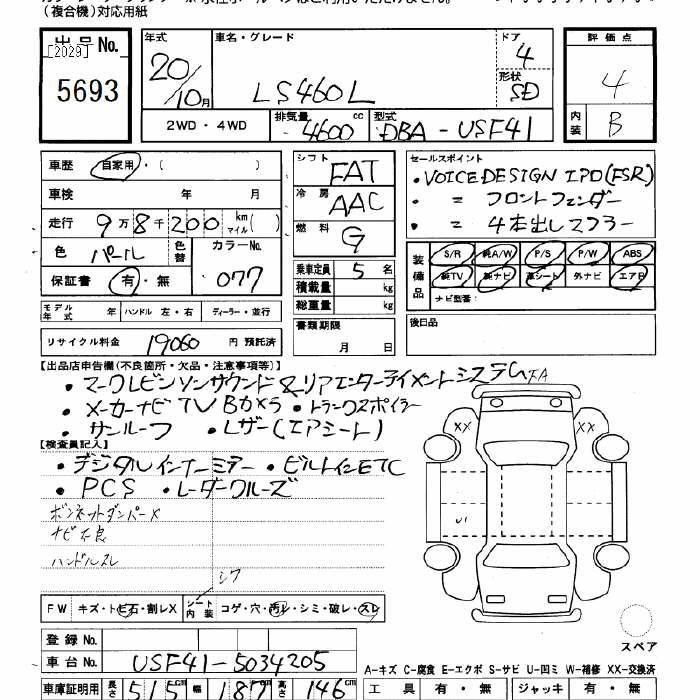 (複合機)対応用紙
出品No.
[2029]
5693
年式 20/10月
車名・グレード LS460L
ドア 4
形状 SD
2WD・4WD
排気量 4600 cc
型式 DBA-USF41
評価点 4
内装 B
車歴 自家用・(　　)
車検　年　月
走行 9万8千200 km マイル(　)
色 パール 色替
カラーNo. 077
保証書 有・無
モデル年式　年
ハンドル 左・右
ディーラー・並行
リサイクル料金 19060 円 預託済
シフト FAT
冷房 AAC
燃料 G
乗車定員 5 名
積載量 kg
総重量 kg
書類期限
月　日
セールスポイント
・VOICE DESIGN エアロ(FSR)
・〃 フロントフェンダー
・〃 4本出しマフラー
装備品
S/R 純A/W P/S P/W ABS
純TV 純ナビ 革シート 外ナビ エアB
ナビ型番:
後日品
【出品店申告欄(不良箇所・欠品・注意事項等)】
・マークレビンソンサウンド&リアエンターテイメントシステム
・メーカーナビTVBカメラ ・トランクスポイラー
・サンルーフ ・Lザー(エアシート)
【検査員記入】
・デジタルインナーミラー ・ビルトインETC
・PCS ・レーダークルーズ
ボンネットダンパーX
ナビ不良
ハンドルスレ
シワ
FW キズ・トビ石・割レX
シート内装 コゲ・穴・汚レ・シミ・破レ・スレ
FA
XX XX
U1
スペア
登録No.
車台No. USF41-5034205
A-キズ C-腐食 E-エクボ S-サビ U-凹ミ W-補修 XX-交換済
車庫証明用 長さ 515 cm 幅 187 cm 高さ 146 cm
工具 有・無 ジャッキ 有・無